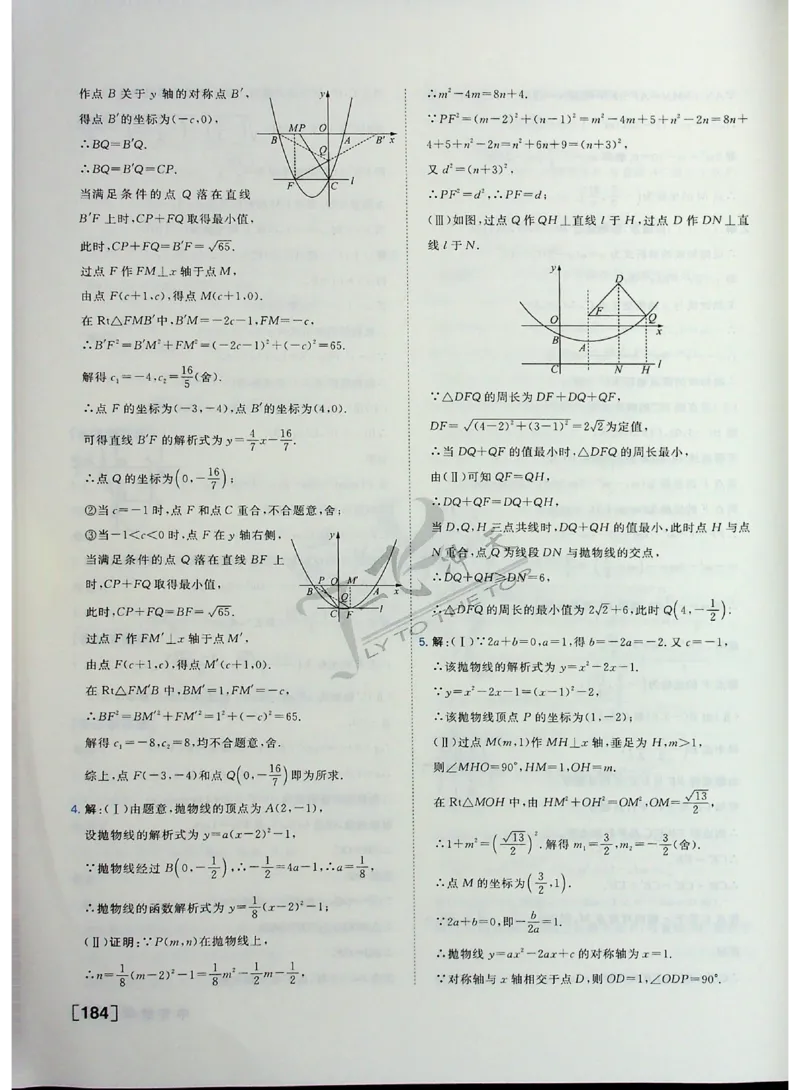 作点 B 关于 y 轴的对称点 B′,
得点 B′的坐标为(-c,0),
∴BQ=B′Q.
∴BQ=B′Q=CP.
当满足条件的点 Q 落在直线
B′F 上时,CP+FQ取得最小值,
此时,CP+FQ=B′F=√65.
过点 F 作FM⊥x 轴于点M,
由点 F(c+1,c),得点 M(c+1,0).
在 Rt△FMB′中,B′M=-2c-1,FM=-c,
∴B′F²=B′M²+FM²=(-2c-1)²+(-c)²=65.
解得 c₁=-4,c₂=16/5(舍).
∴点 F 的坐标为(-3,-4),点 B′的坐标为(4,0).
可得直线 B′F 的解析式为 y=4/7x-16/7.
∴点 Q 的坐标为(0,-16/7);
②当 c=-1 时,点 F 和点 C 重合,不合题意,舍;
③当-1<c<0 时,点 F 在 y 轴右侧,
当满足条件的点 Q 落在直线 BF 上
时,CP+FQ 取得最小值,
此时,CP+FQ=BF=√65.
过点 F 作FM′⊥x 轴于点M′,
由点 F(c+1,c),得点 M′(c+1,0).
在 Rt△FM′B 中,BM′=1,FM′=-c,
∴BF²=BM′²+FM′²=1²+(-c)²=65.
解得 c₁=-8,c₂=8,均不合题意,舍.
综上,点 F(-3,-4)和点 Q(0,-16/7)即为所求.
4. 解:(Ⅰ)由题意,抛物线的顶点为 A(2,-1),
设抛物线的解析式为 y=a(x-2)²-1,
∵抛物线经过 B(0,-1/2),∴-1/2=4a-1,∴a=1/8,
∴抛物线的函数解析式为 y=1/8(x-2)²-1;
(Ⅱ)证明:∵P(m,n)在抛物线上,
∴n=1/8(m-2)²-1=1/8m²-1/2m-1/2,
[184]
y
M P O
B A B′ x
Q
F C l
y
P O M′
B A x
Q
C F l
∴m²-4m=8n+4.
∵PF²=(m-2)²+(n-1)²=m²-4m+5+n²-2n=8n+
4+5+n²-2n=n²+6n+9=(n+3)²,
又 d²=(n+3)²,
∴PF²=d²,∴PF=d;
(Ⅲ)如图,过点 Q 作QH⊥直线 l 于 H,过点 D 作 DN⊥直
线 l 于 N.
y
D
F
O Q
x
B A
C N H l
∵△DFQ 的周长为 DF+DQ+QF,
DF=√(4-2)²+(3-1)²=2√2为定值,
∴当 DQ+QF 的值最小时,△DFQ 的周长最小,
由(Ⅱ)可知 QF=QH,
∴DQ+QF=DQ+QH,
当 D,Q,H 三点共线时,DQ+QH 的值最小,此时点 H 与点
N 重合,点 Q 为线段 DN 与抛物线的交点,
∴DQ+QH≥DN=6,
∴△DFQ 的周长的最小值为 2√2+6,此时 Q(4,-1/2).
5. 解:(Ⅰ)∵2a+b=0,a=1,得 b=-2a=-2.又 c=-1,
∴该抛物线的解析式为 y=x²-2x-1.
∵y=x²-2x-1=(x-1)²-2,
∴该抛物线顶点 P 的坐标为(1,-2);
(Ⅱ)过点 M(m,1)作 MH⊥x 轴,垂足为 H,m>1,
则∠MHO=90°,HM=1,OH=m.
在 Rt△MOH 中,由 HM²+OH²=OM²,OM=√13/2,
∴1+m²=(√13/2)².解得 m₁=3/2,m₂=-3/2(舍).
∴点 M 的坐标为(3/2,1).
∵2a+b=0,即-b/2a=1.
∴抛物线 y=ax²-2ax+c 的对称轴为 x=1.
∵对称轴与 x 轴相交于点 D,则 OD=1,∠ODP=90°.
LY TO THE TOP